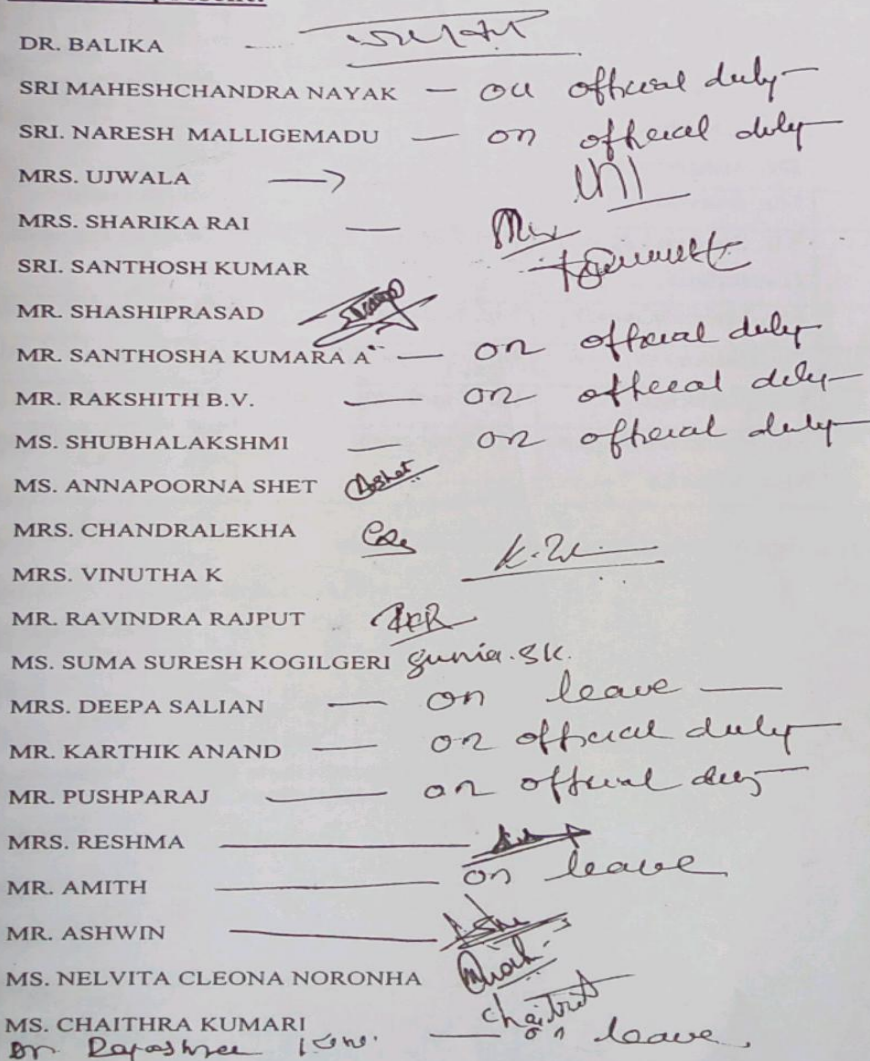 DR. BALIKA
SRI MAHESHCHANDRA NAYAK — on official duty
SRI. NARESH MALLIGEMADU — on official duty
MRS. UJWALA
MRS. SHARIKA RAI —
SRI. SANTHOSH KUMAR
MR. SHASHIPRASAD
MR. SANTHOSHA KUMARA A — on official duty
MR. RAKSHITH B.V. — on official duty
MS. SHUBHALAKSHMI — on official duty
MS. ANNAPOORNA SHET AShet
MRS. CHANDRALEKHA
MRS. VINUTHA K
MR. RAVINDRA RAJPUT
MS. SUMA SURESH KOGILGERI Suma.SK.
MRS. DEEPA SALIAN — on leave —
MR. KARTHIK ANAND — on official duty
MR. PUSHPARAJ — on official duty
MRS. RESHMA
MR. AMITH — on leave
MR. ASHWIN
MS. NELVITA CLEONA NORONHA
MS. CHAITHRA KUMARI Chaitra
Dr Rajashree — on leave